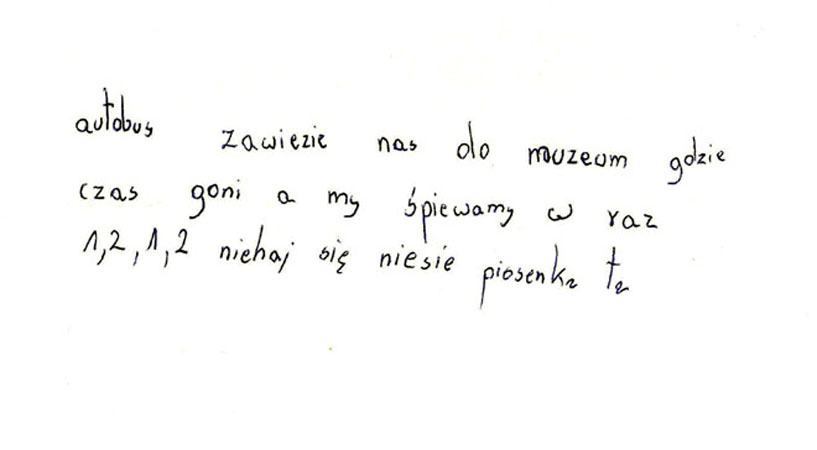 autobus zawiezie nas do muzeum gdzie
czas goni a my śpiewamy w raz
1,2,1,2 niehaj się niesie piosenka ta